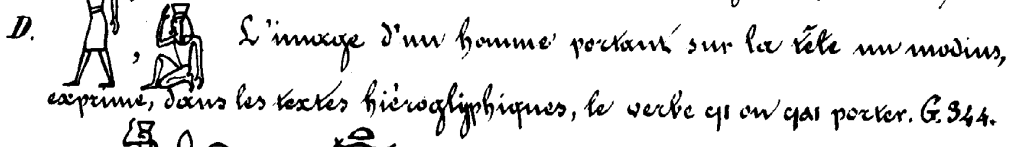 D. , L'image d'un homme portant sur la tête un modius,
exprime, dans les textes hiéroglyphiques, le verbe ϥι ou ϥαι porter. G. 344.